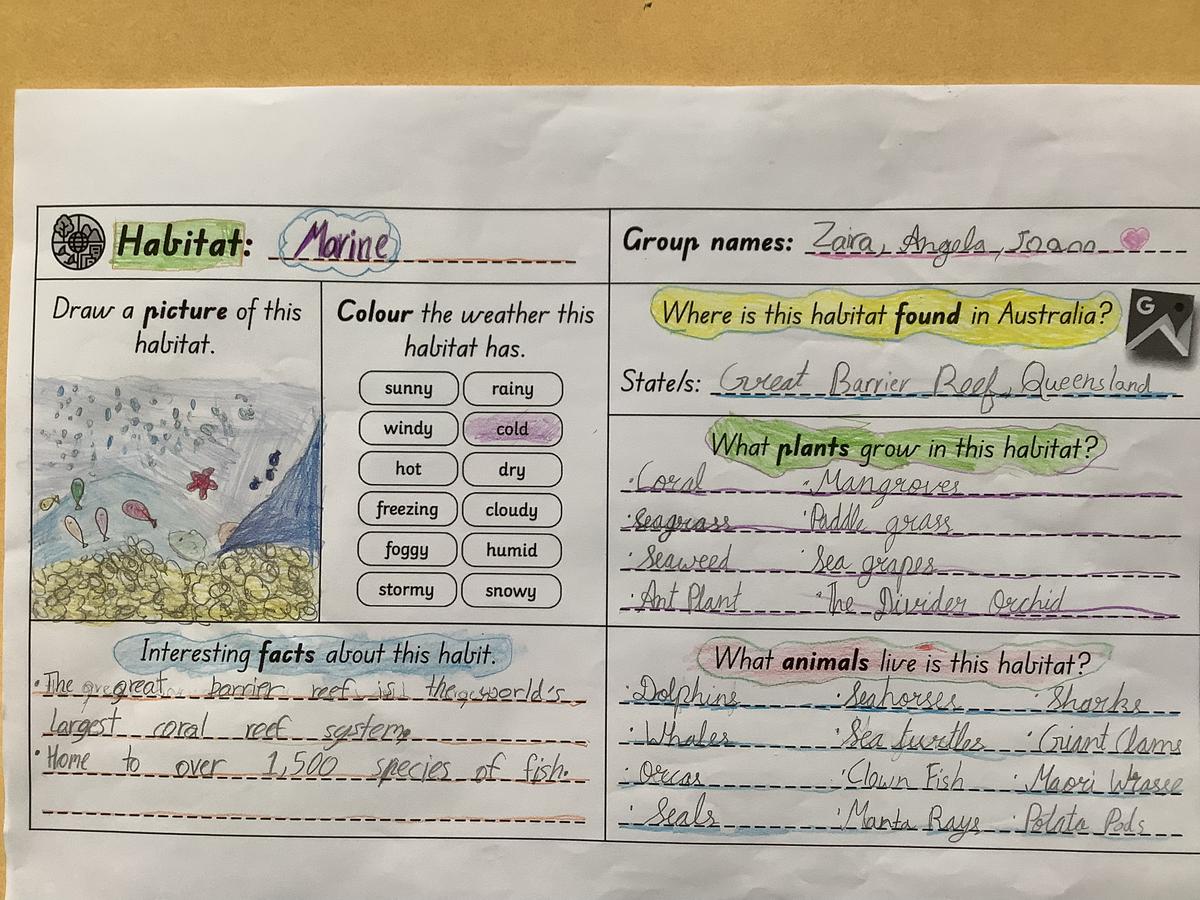 Habitat: Marine
Group names: Zaira, Angela, Joann
Draw a picture of this
habitat.
Colour the weather this
habitat has.
sunny rainy
windy cold
hot dry
freezing cloudy
foggy humid
stormy snowy
Where is this habitat found in Australia?
G
State/s: Great Barrier Reef, Queensland
What plants grow in this habitat?
·Coral ·Mangroves
·Seagrass ·Paddle grass
·Seaweed ·Sea grapes
·Ant Plant ·The Divider Orchid
Interesting facts about this habit.
·The great barrier reef is the world's
largest coral reef system.
·Home to over 1,500 species of fish.
What animals live is this habitat?
·Dolphins ·Seahorses ·Sharks
·Whales ·Sea turtles ·Giant Clams
·Orcas ·Clown Fish ·Maori Wrasse
·Seals ·Manta Rays ·Potato Pods